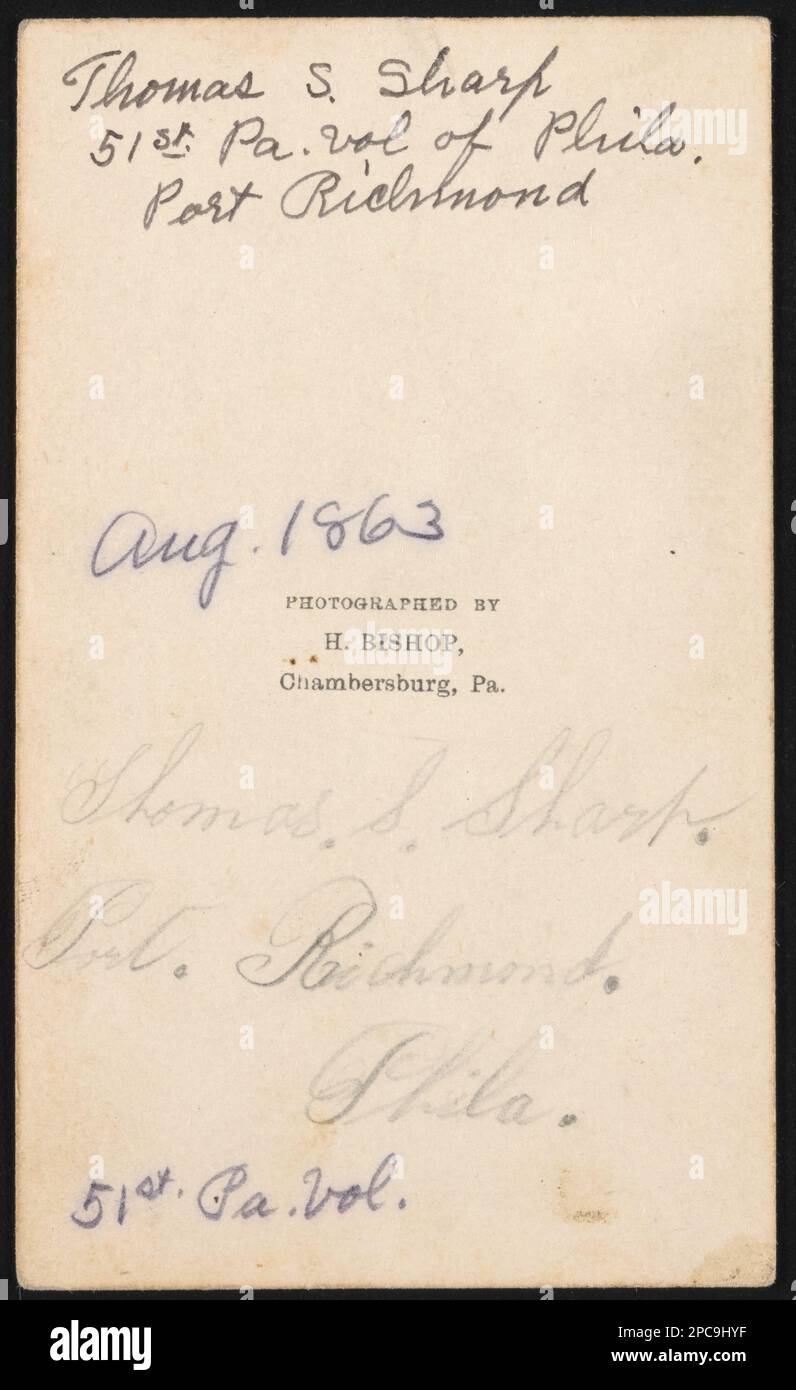 Thomas S. Sharp
51st. Pa. Vol of Phila.
Port Richmond
Aug. 1863
PHOTOGRAPHED BY
H. BISHOP,
Chambersburg, Pa.
Thomas. S. Sharp.
Port. Richmond.
Phila.
51st. Pa. Vol.
alamy
alamy
Image ID: 2PC9HYF
www.alamy.com